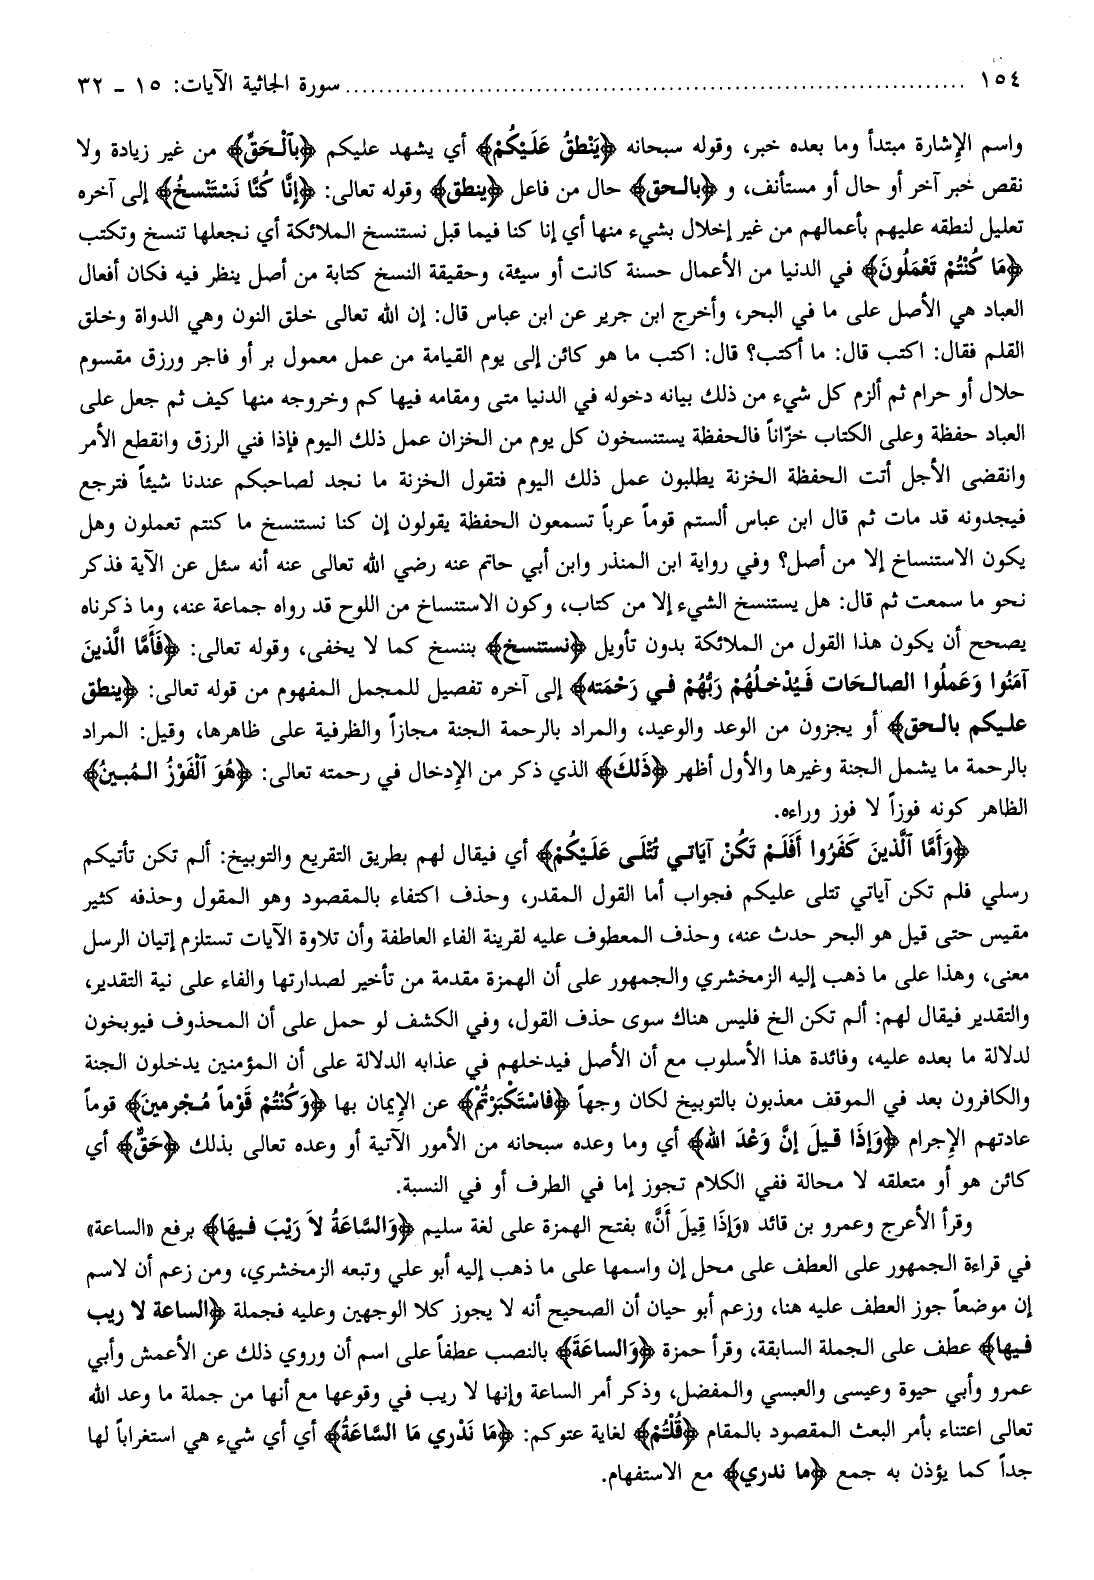 ١٥٤ ........................................................................ سورة الجاثية الآيات: ١٥ ـ ٣٢
واسم الإشارة مبتدأ وما بعده خبر، وقوله سبحانه ﴿يَنْطِقُ عَلَيْكُمْ﴾ أي يشهد عليكم ﴿بِٱلْحَقِّ﴾ من غير زيادة ولا
نقص خبر آخر أو حال أو مستأنف، و ﴿بالحق﴾ حال من فاعل ﴿ينطق﴾ وقوله تعالى: ﴿إِنَّا كُنَّا نَسْتَنْسِخُ﴾ إلى آخره
تعليل لنطقه عليهم بأعمالهم من غير إخلال بشيء منها أي إنا كنا فيما قبل نستنسخ الملائكة أي نجعلها تنسخ وتكتب
﴿مَا كُنْتُمْ تَعْمَلُونَ﴾ في الدنيا من الأعمال حسنة كانت أو سيئة، وحقيقة النسخ كتابة من أصل ينظر فيه فكان أفعال
العباد هي الأصل على ما في البحر، وأخرج ابن جرير عن ابن عباس قال: إن الله تعالى خلق النون وهي الدواة وخلق
القلم فقال: اكتب قال: ما أكتب؟ قال: اكتب ما هو كائن إلى يوم القيامة من عمل معمول بر أو فاجر ورزق مقسوم
حلال أو حرام ثم ألزم كل شيء من ذلك بيانه دخوله في الدنيا متى ومقامه فيها كم وخروجه منها كيف ثم جعل على
العباد حفظة وعلى الكتاب خزّاناً فالحفظة يستنسخون كل يوم من الخزان عمل ذلك اليوم فإذا فني الرزق وانقطع الأمر
وانقضى الأجل أتت الحفظة الخزنة يطلبون عمل ذلك اليوم فتقول الخزنة ما نجد لصاحبكم عندنا شيئاً فترجع
فيجدونه قد مات ثم قال ابن عباس ألستم قوماً عرباً تسمعون الحفظة يقولون إن كنا نستنسخ ما كنتم تعملون وهل
يكون الاستنساخ إلا من أصل؟ وفي رواية ابن المنذر وابن أبي حاتم عنه رضي الله تعالى عنه أنه سئل عن الآية فذكر
نحو ما سمعت ثم قال: هل يستنسخ الشيء إلا من كتاب، وكون الاستنساخ من اللوح قد رواه جماعة عنه، وما ذكرناه
يصحح أن يكون هذا القول من الملائكة بدون تأويل ﴿نستنسخ﴾ بننسخ كما لا يخفى، وقوله تعالى: ﴿فَأَمَّا الَّذِينَ
آمَنُوا وَعَمِلُوا الصالحَات فَيُدْخِلُهُمْ رَبُّهُمْ في رَحْمَته﴾ إلى آخره تفصيل للمجمل المفهوم من قوله تعالى: ﴿ينطق
عليكم بالحق﴾ أو يجزون من الوعد والوعيد، والمراد بالرحمة الجنة مجازاً والظرفية على ظاهرها، وقيل: المراد
بالرحمة ما يشمل الجنة وغيرها والأول أظهر ﴿ذَلكَ﴾ الذي ذكر من الإدخال في رحمته تعالى: ﴿هُوَ ٱلْفَوْزُ المُبينُ﴾
الظاهر كونه فوزاً لا فوز وراءه.
﴿وَأَمَّا ٱلَّذينَ كَفَرُوا أَفَلَمْ تَكُنْ آيَاتي تُتْلَى عَلَيْكُمْ﴾ أي فيقال لهم بطريق التقريع والتوبيخ: ألم تكن تأتيكم
رسلي فلم تكن آياتي تتلى عليكم فجواب أما القول المقدر، وحذف اكتفاء بالمقصود وهو المقول وحذفه كثير
مقيس حتى قيل هو البحر حدث عنه، وحذف المعطوف عليه لقرينة الفاء العاطفة وأن تلاوة الآيات تستلزم إتيان الرسل
معنى، وهذا على ما ذهب إليه الزمخشري والجمهور على أن الهمزة مقدمة من تأخير لصدارتها والفاء على نية التقدير،
والتقدير فيقال لهم: ألم تكن الخ فليس هناك سوى حذف القول، وفي الكشف لو حمل على أن المحذوف فيوبخون
لدلالة ما بعده عليه، وفائدة هذا الأسلوب مع أن الأصل فيدخلهم في عذابه الدلالة على أن المؤمنين يدخلون الجنة
والكافرون بعد في الموقف معذبون بالتوبيخ لكان وجهاً ﴿فاسْتَكْبَرْتُمْ﴾ عن الإيمان بها ﴿وَكُنْتُمْ قَوْماً مُجْرمينَ﴾ قوماً
عادتهم الإجرام ﴿وَإِذَا قيلَ إِنَّ وَعْدَ الله﴾ أي وما وعده سبحانه من الأمور الآتية أو وعده تعالى بذلك ﴿حَقٌّ﴾ أي
كائن هو أو متعلقه لا محالة ففي الكلام تجوز إما في الطرف أو في النسبة.
وقرأ الأعرج وعمرو بن قائد «وَإِذَا قِيلَ أَنَّ» بفتح الهمزة على لغة سليم ﴿وَالسَّاعَةُ لاَ رَيْبَ فيهَا﴾ برفع «الساعة»
في قراءة الجمهور على العطف على محل إن واسمها على ما ذهب إليه أبو علي وتبعه الزمخشري، ومن زعم أن لاسم
إن موضعاً جوز العطف عليه هنا، وزعم أبو حيان أن الصحيح أنه لا يجوز كلا الوجهين وعليه فجملة ﴿الساعة لا ريب
فيها﴾ عطف على الجملة السابقة، وقرأ حمزة ﴿وَالساعَةَ﴾ بالنصب عطفاً على اسم أن وروي ذلك عن الأعمش وأبي
عمرو وأبي حيوة وعيسى والعبسي والمفضل، وذكر أمر الساعة وإنها لا ريب في وقوعها مع أنها من جملة ما وعد الله
تعالى اعتناء بأمر البعث المقصود بالمقام ﴿قُلْتُمْ﴾ لغاية عتوكم: ﴿مَا نَدْري مَا السَّاعَةُ﴾ أي أي شيء هي استغراباً لها
جداً كما يؤذن به جمع ﴿ما ندري﴾ مع الاستفهام.